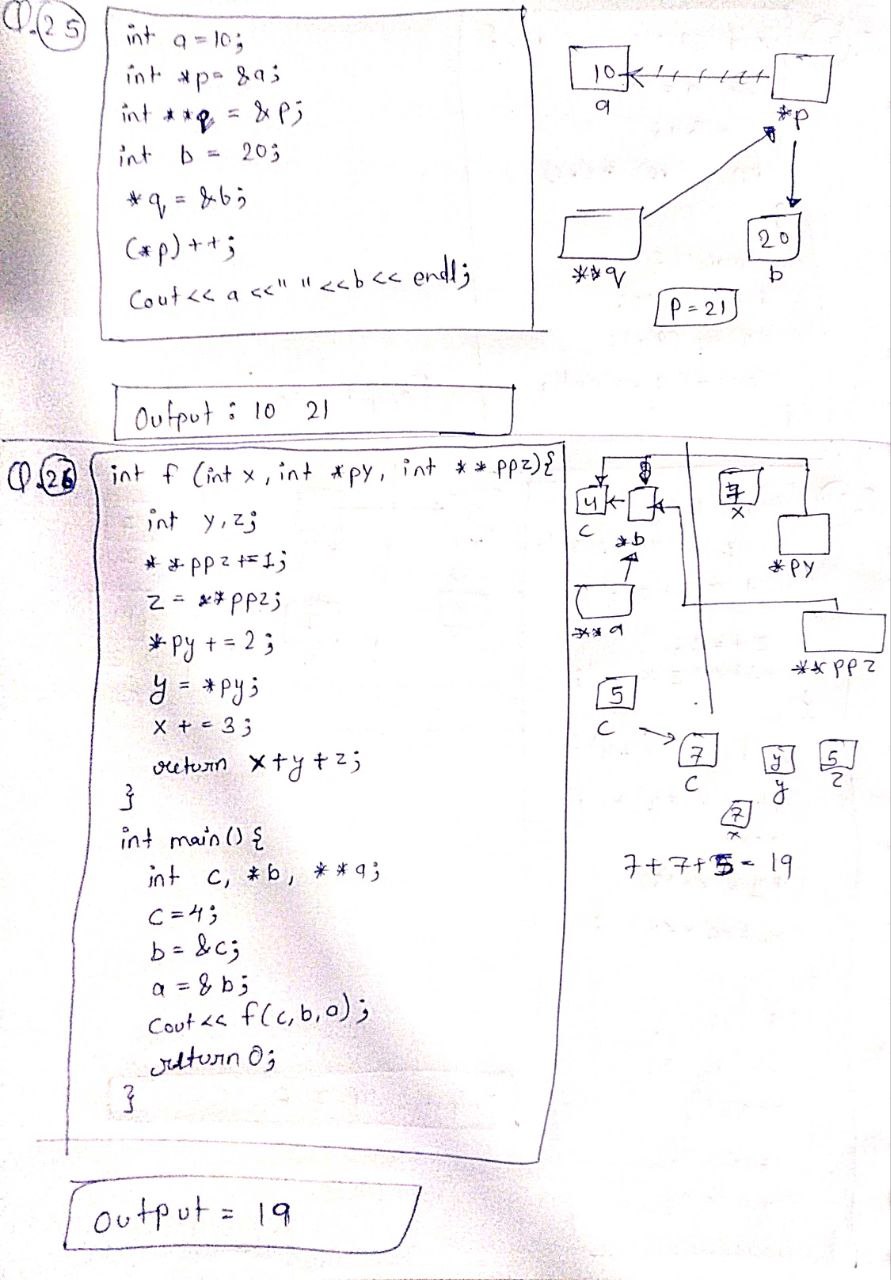 Q.25
int a=10;
int *p= &a;
int **q = &p;
int b = 20;
*q = &b;
(*p)++;
Cout<< a <<" "<<b<< endl;
10
a
*p
**q
20
b
P=21
Output : 10 21
Q.26
int f (int x, int *py, int **ppz){
int y,z;
**ppz+=1;
z = **ppz;
*py += 2;
y = *py;
x += 3;
return x+y+z;
}
int main() {
int c, *b, **a;
c=4;
b= &c;
a = &b;
Cout<< f(c,b,a);
return 0;
}
4
c
*b
**a
7
x
*py
**ppz
5
c
7
c
y
y
5
z
7
x
7+7+5= 19
Output = 19